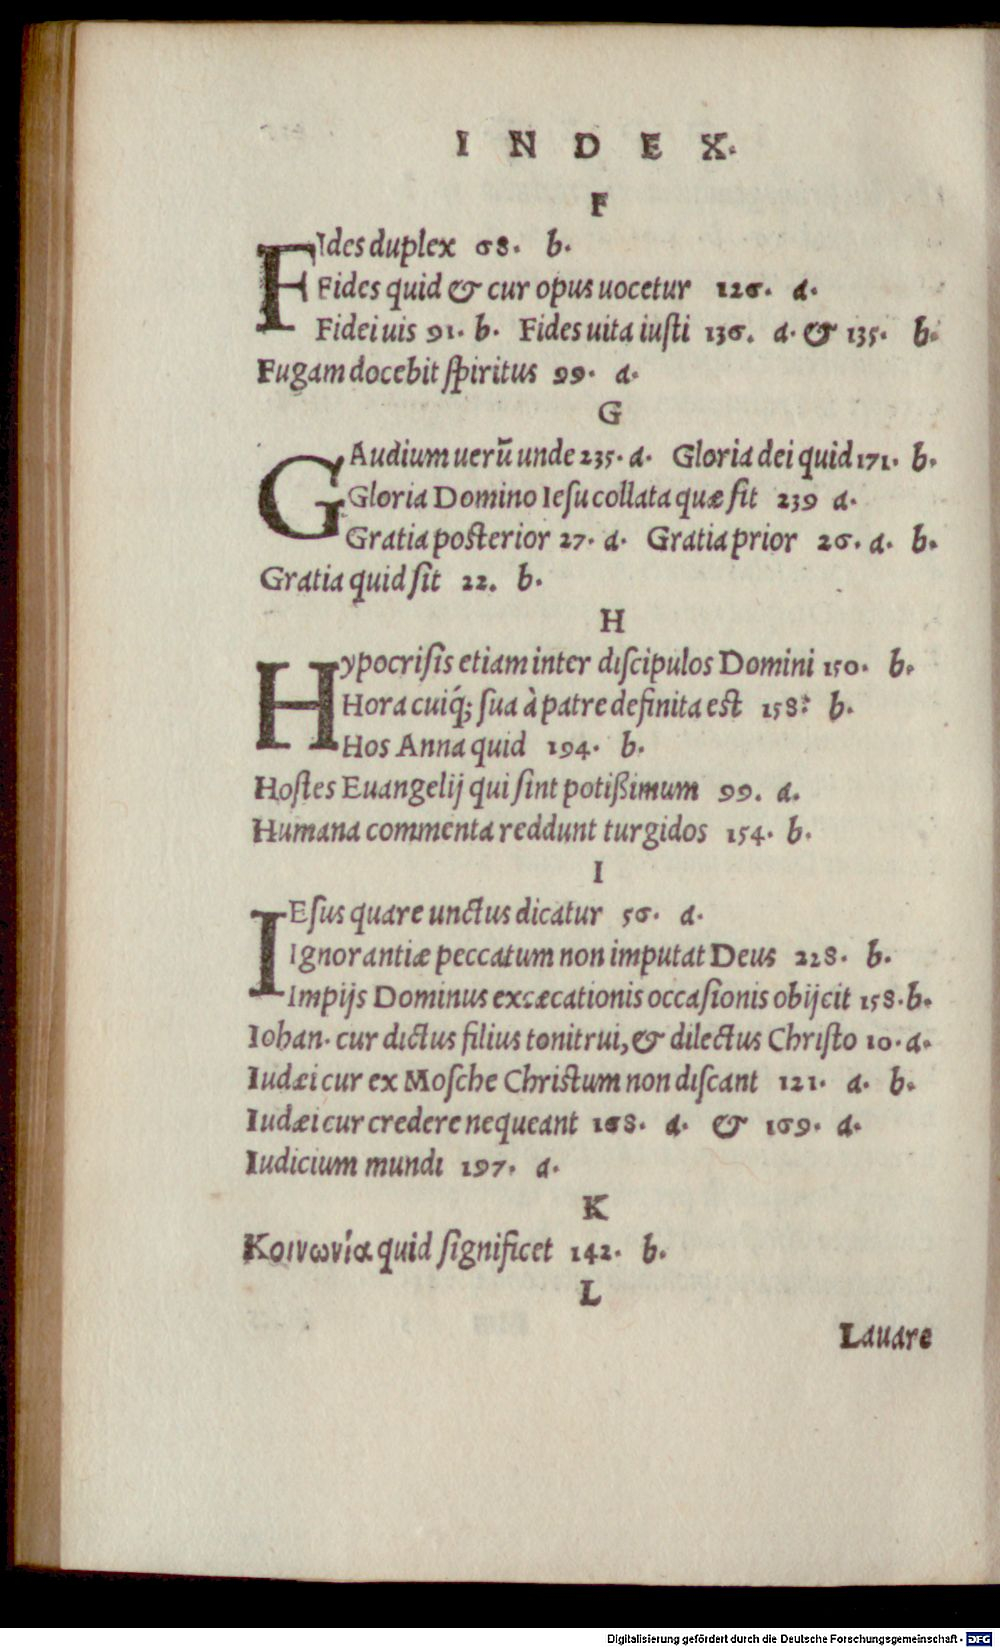 INDEX.
F
FIdes duplex 68. b.
Fides quid & cur opus uocetur 126. a.
Fidei uis 91. b. Fides uita iuſti 136. a. & 135. b.
Fugam docebit ſpiritus 99. a.
G
GAudium uerū unde 235. a. Gloria dei quid 171. b.
Gloria Domino Ieſu collata quæ ſit 239 a.
Gratia poſterior 27. a. Gratia prior 26. a. b.
Gratia quid ſit 22. b.
H
Hypocriſis etiam inter diſcipulos Domini 150. b.
Hora cuiq́; ſua à patre definita eſt 158. b.
Hos Anna quid 194. b.
Hoſtes Euangelij qui ſint potißimum 99. a.
Humana commenta reddunt turgidos 154. b.
I
IEſus quare unctus dicatur 56. a.
Ignorantiæ peccatum non imputat Deus 228. b.
Impijs Dominus excæcationis occaſionis obijcit 158. b.
Iohan. cur dictus filius tonitrui, & dilectus Chriſto 10. a.
Iudæi cur ex Moſche Chriſtum non diſcant 121. a. b.
Iudæi cur credere nequeant 168. a. & 169. a.
Iudicium mundi 197. a.
K
Κοινωνία quid ſignificet 142. b.
L
Lauare
Digitalisierung gefördert durch die Deutsche Forschungsgemeinschaft - DFG